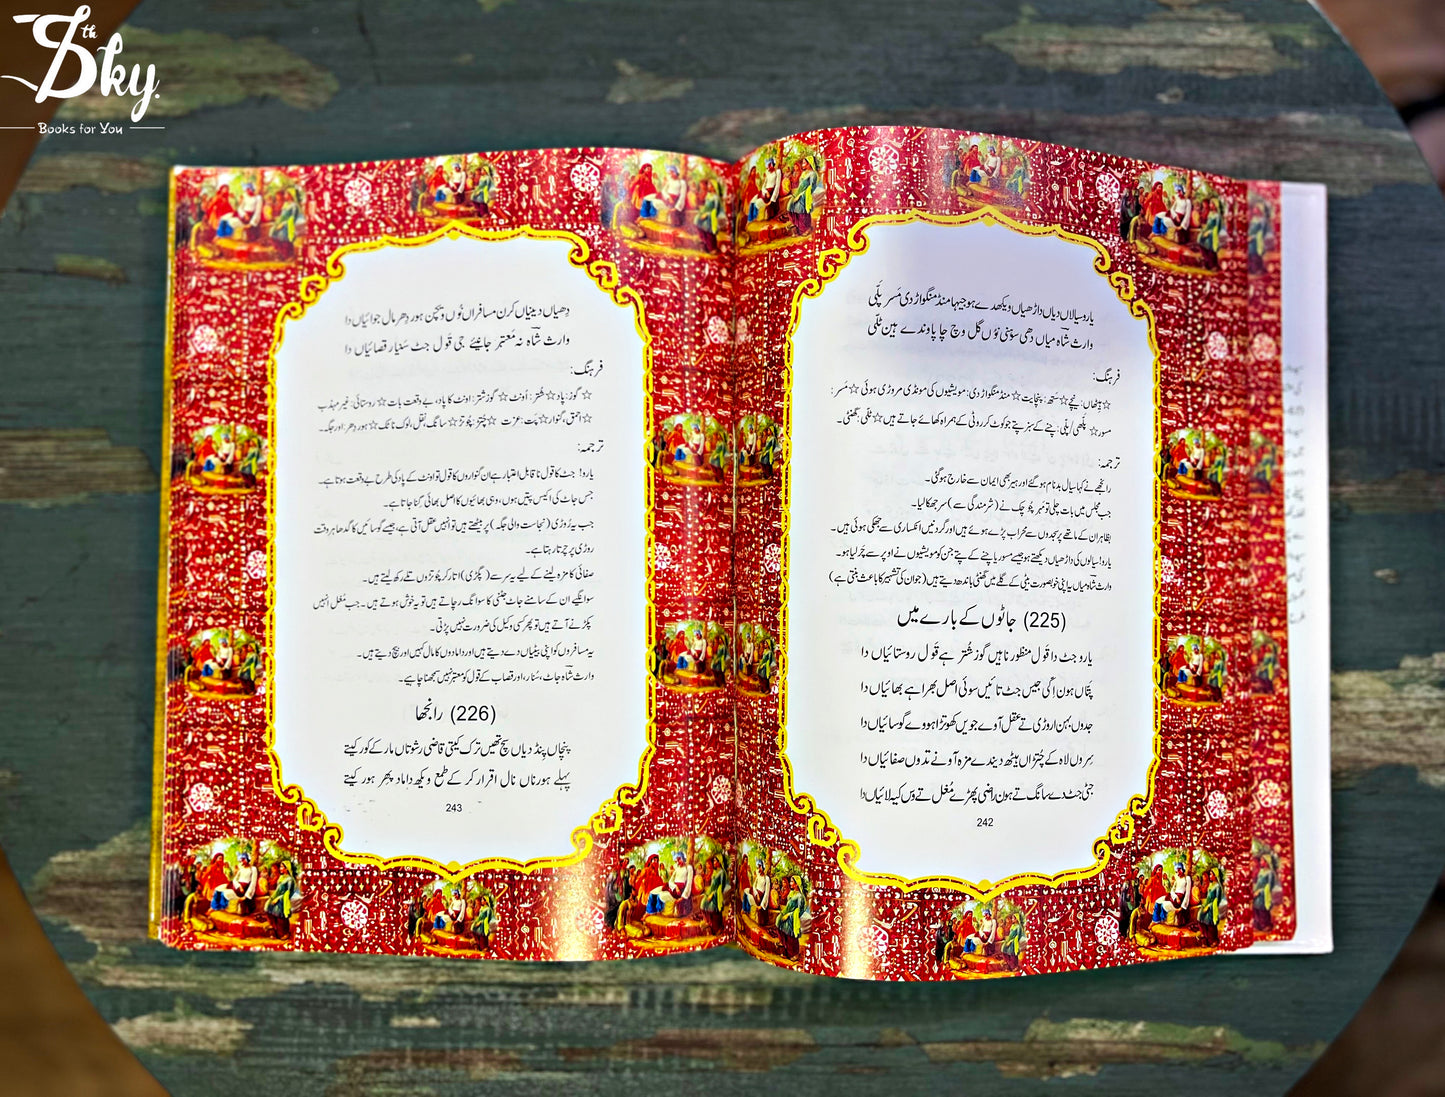 8th Sky.
Books for You
یارو سیالاں دیاں داڑھیاں ویکھدے ہو جیہا منڈ منگواڑ دی مَسر پَلّی
وارث شاہ میاں دھی سوہنی نوں گل وچ چا پاوندے ہین ٹَلّی
فرہنگ:
☆ ہیٹھاں: نیچے ☆ سَتھ: پنچایت ☆ منڈ منگواڑ دی: مویشیوں کی مونڈی مروڑی ہوئی ☆ مَسر:
مسور ☆ پَلّھی/پَلّی: چنے کے سبز پتے جو کوٹ کر روٹی کے ہمراہ کھائے جاتے ہیں ☆ ٹلّی: گھنٹی۔
ترجمہ:
رانجھے نے کہا سیال بدنام ہو گئے اور ہیر بھی ایمان سے خارج ہو گئی۔
جب مجلس میں بات چلی تو مہر چوچک نے (شرمندگی سے) سر جھکا لیا۔
بظاہر ان کے ماتھے پر سجدوں سے محراب پڑے ہوئے ہیں اور گردنیں انکساری سے جھکی ہوئی ہیں۔
یارو! سیالوں کی داڑھیاں دیکھتے ہو جیسے مسور یا چنے کے پتے جن کو مویشیوں نے اوپر سے چَر لیا ہو۔
وارث شاہ میاں یہ اپنی خوبصورت بیٹی کے گلے میں گھنٹی باندھ دیتے ہیں (جو ان کی تشہیر کا باعث بنتی ہے)
(225) جاٹوں کے بارے میں
یارو جٹ دا قول منظور ناہیں گوز شُتر ہے قول روستائیاں دا
پتّاں ہون اِکّی جیس جٹ تائیں سوئی اصل بھرا ہے بھائیاں دا
جدوں بہن اروڑی تے عقل آوے جویں کھوتڑا ہووے گوسائیاں دا
سِروں لاہ کے چُتڑاں ہیٹھ دیندے مزہ آونے ندوں صفائیاں دا
جٹی جٹ دے سانگ تے ہون راضی پھڑے مُغل تے وس کیہ لائیاں دا
242
دھیاں دینیاں کرن مسافراں نُوں ویچن ہور دھر مال جوائیاں دا
وارث شاہ نہ مُعتبر جانیئے جی قول جٹ سُنیار قصائیاں دا
فرہنگ:
☆ گوز: پاد ☆ شتر: اُونٹ ☆ گوزِ شتر: اونٹ کا پاد، بے وقعت بات ☆ روستائی: غیر مہذب
☆ احمق، گنوار ☆ پَت: عزت ☆ چُتڑ: چُوتڑ ☆ سانگ: نقل، لوک ناٹک ☆ ہور دھر: اور جگہ۔
ترجمہ:
یارو! جٹ کا قول ناقابلِ اعتبار ہے ان گنواروں کا قول تو اونٹ کے پاد کی طرح بے وقعت ہوتا ہے۔
جس جاٹ کی اکیس پتیں ہوں، وہی بھائیوں کا اصل بھائی گِنا جاتا ہے۔
جب یہ رُوڑی (نجاست والی جگہ) پر بیٹھتے ہیں تو انہیں عقل آتی ہے، جیسے گوسائیں کا گدھا ہر وقت
روڑی پر چرتا رہتا ہے۔
صفائی کا مزہ لینے کے لیے یہ سر سے (پگڑی) اتار کر چُوتڑوں تلے رکھ لیتے ہیں۔
سوانگیے ان کے سامنے جاٹ جٹنی کا سوانگ رچاتے ہیں تو یہ خوش ہوتے ہیں۔ جب مُغل انہیں
پکڑنے آتے ہیں تو پھر کسی وکیل کی ضرورت نہیں پڑتی۔
یہ مسافروں کو اپنی بیٹیاں دے دیتے ہیں اور دامادوں کا مال کہیں اور بیچ دیتے ہیں۔
وارث شاہ جاٹ، سُنار، اور قصاب کے قول کو معتبر نہیں سمجھنا چاہیے۔
(226) رانجھا
پنچاں پِنڈ دیاں سچ تھیں ترک کیتی قاضی رشوتاں مار کے کور کیتے
پہلے ہورناں نال اقرار کر کے طمع ویکھ داماد پھر ہور کیتے
243